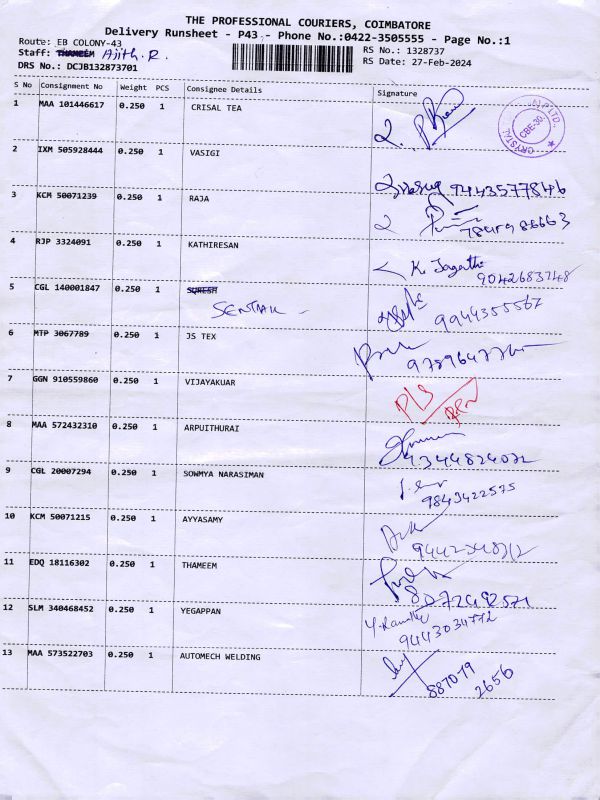 THE PROFESSIONAL COURIERS, COIMBATORE
Delivery Runsheet - P43 - Phone No.:0422-3505555 - Page No.:1
Route: EB COLONY-43
RS No.: 1328737
Staff: THAMEEM Ajith.R.
RS Date: 27-Feb-2024
DRS No.: DCJB132873701
S No Consignment No Weight PCS Consignee Details Signature
1 MAA 101446617 0.250 1 CRISAL TEA
CRYSTAL (I) P LTD. CBE-30.
2 IXM 505928444 0.250 1 VASIGI
9443577846
3 KCM 50071239 0.250 1 RAJA
4 RJP 3324091 0.250 1 KATHIRESAN
K. Jagathi
9042683748
5 CGL 140001847 0.250 1 SURESH
9944355567
6 MTP 3067789 0.250 1 JS TEX
7 GGN 910559860 0.250 1 VIJAYAKUAR
8 MAA 572432310 0.250 1 ARPUITHURAI
9344824072
9 CGL 20007294 0.250 1 SOWMYA NARASIMAN
9843422575
10 KCM 50071215 0.250 1 AYYASAMY
11 EDQ 18116302 0.250 1 THAMEEM
8072492571
12 SLM 340468452 0.250 1 YEGAPPAN
9443034772
13 MAA 573522703 0.250 1 AUTOMECH WELDING
887079
2656